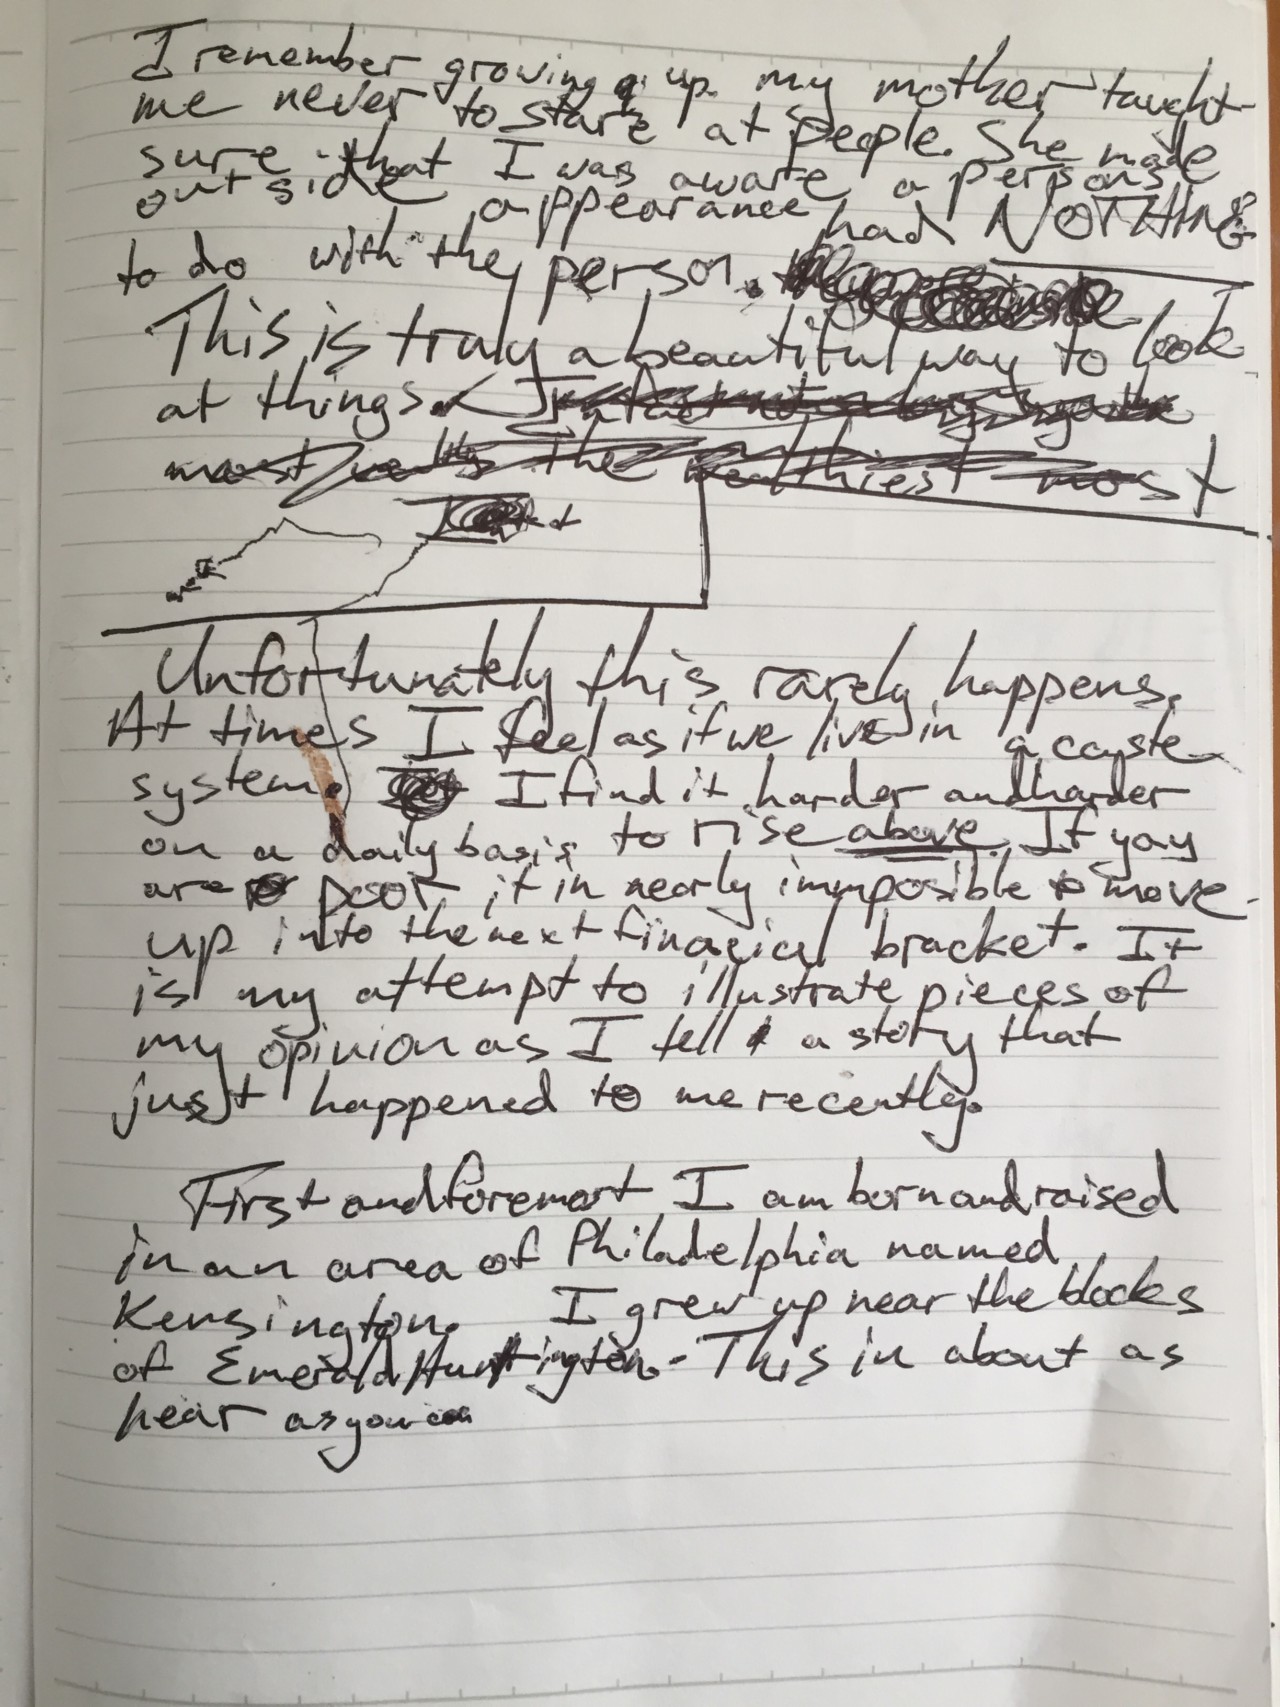 I remember growing up my mother taught
me never to stare at people. She made
sure that I was aware a persons
outside appearance had NOTHING
to do with the person.
This is truly a beautiful way to look
at things.
most really the healthiest most
Unfortunately this rarely happens.
At times I feel as if we live in a cayste
system. I find it harder and harder
on a daily basis to rise above. If you
are poor, it in nearly immposible to move
up into the next finacial bracket. It
is my attempt to illustrate pieces of
my opinion as I tell a story that
just happened to me recently.
First and foremost I am born and raised
in an area of Philadelphia named
Kensington. I grew up near the blocks
of Emerald Huntington. This in about as
near as you can